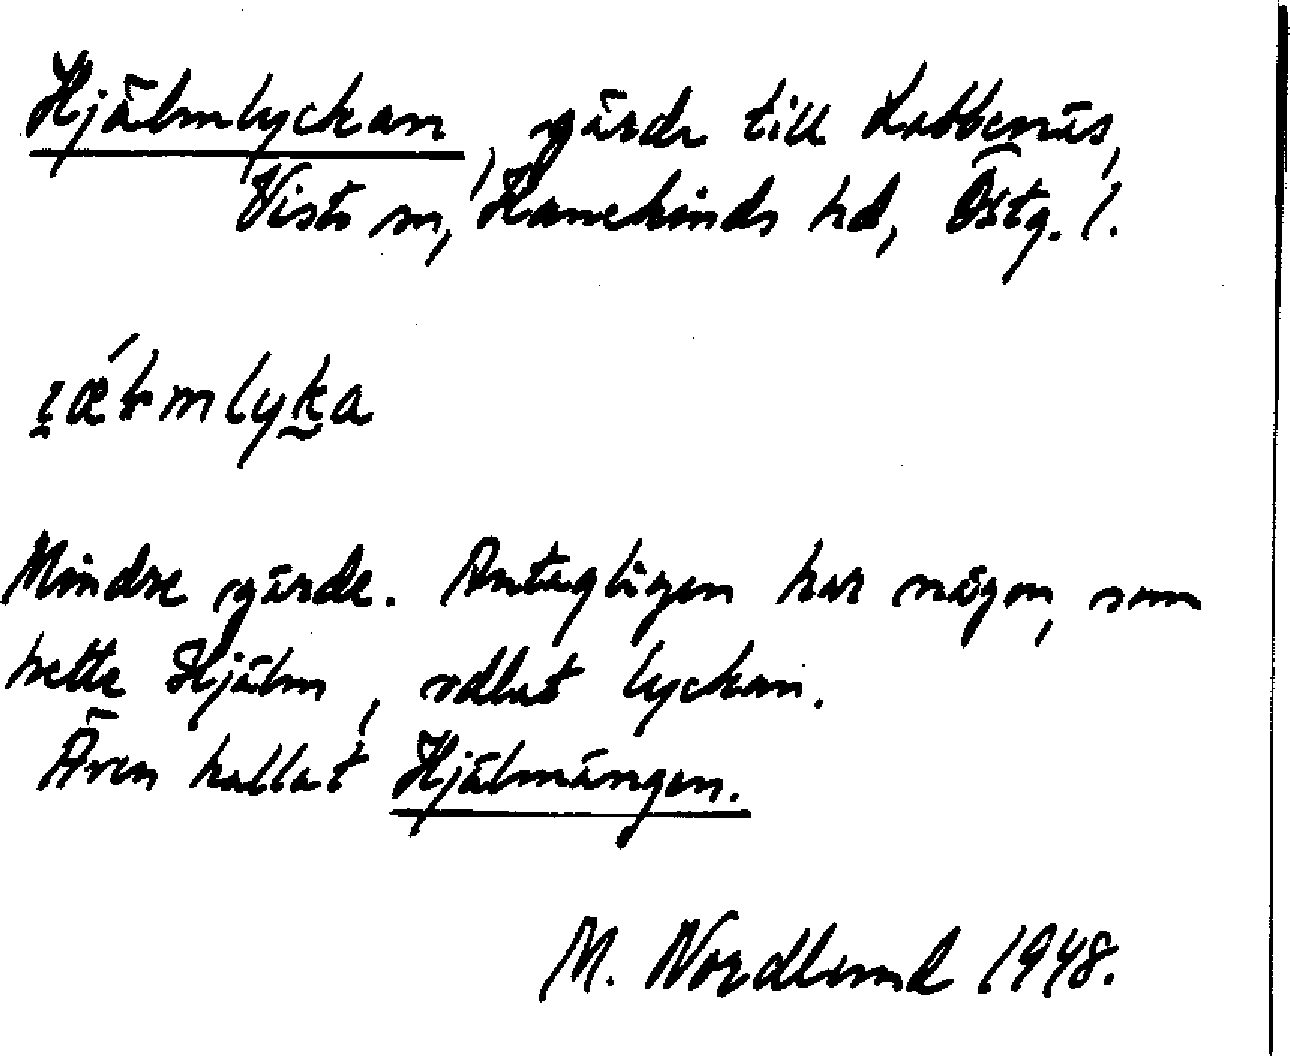 Hjälmlyckan, gärde till Labbenäs,
Vists sn, Hanekinds hd, Östg. l.
mlyka
Mindre gärde. Antagligen har någon, som
hette Hjälm, odlat lyckan.
Även kallat Hjälmängen.
M. Nordlund 1948.